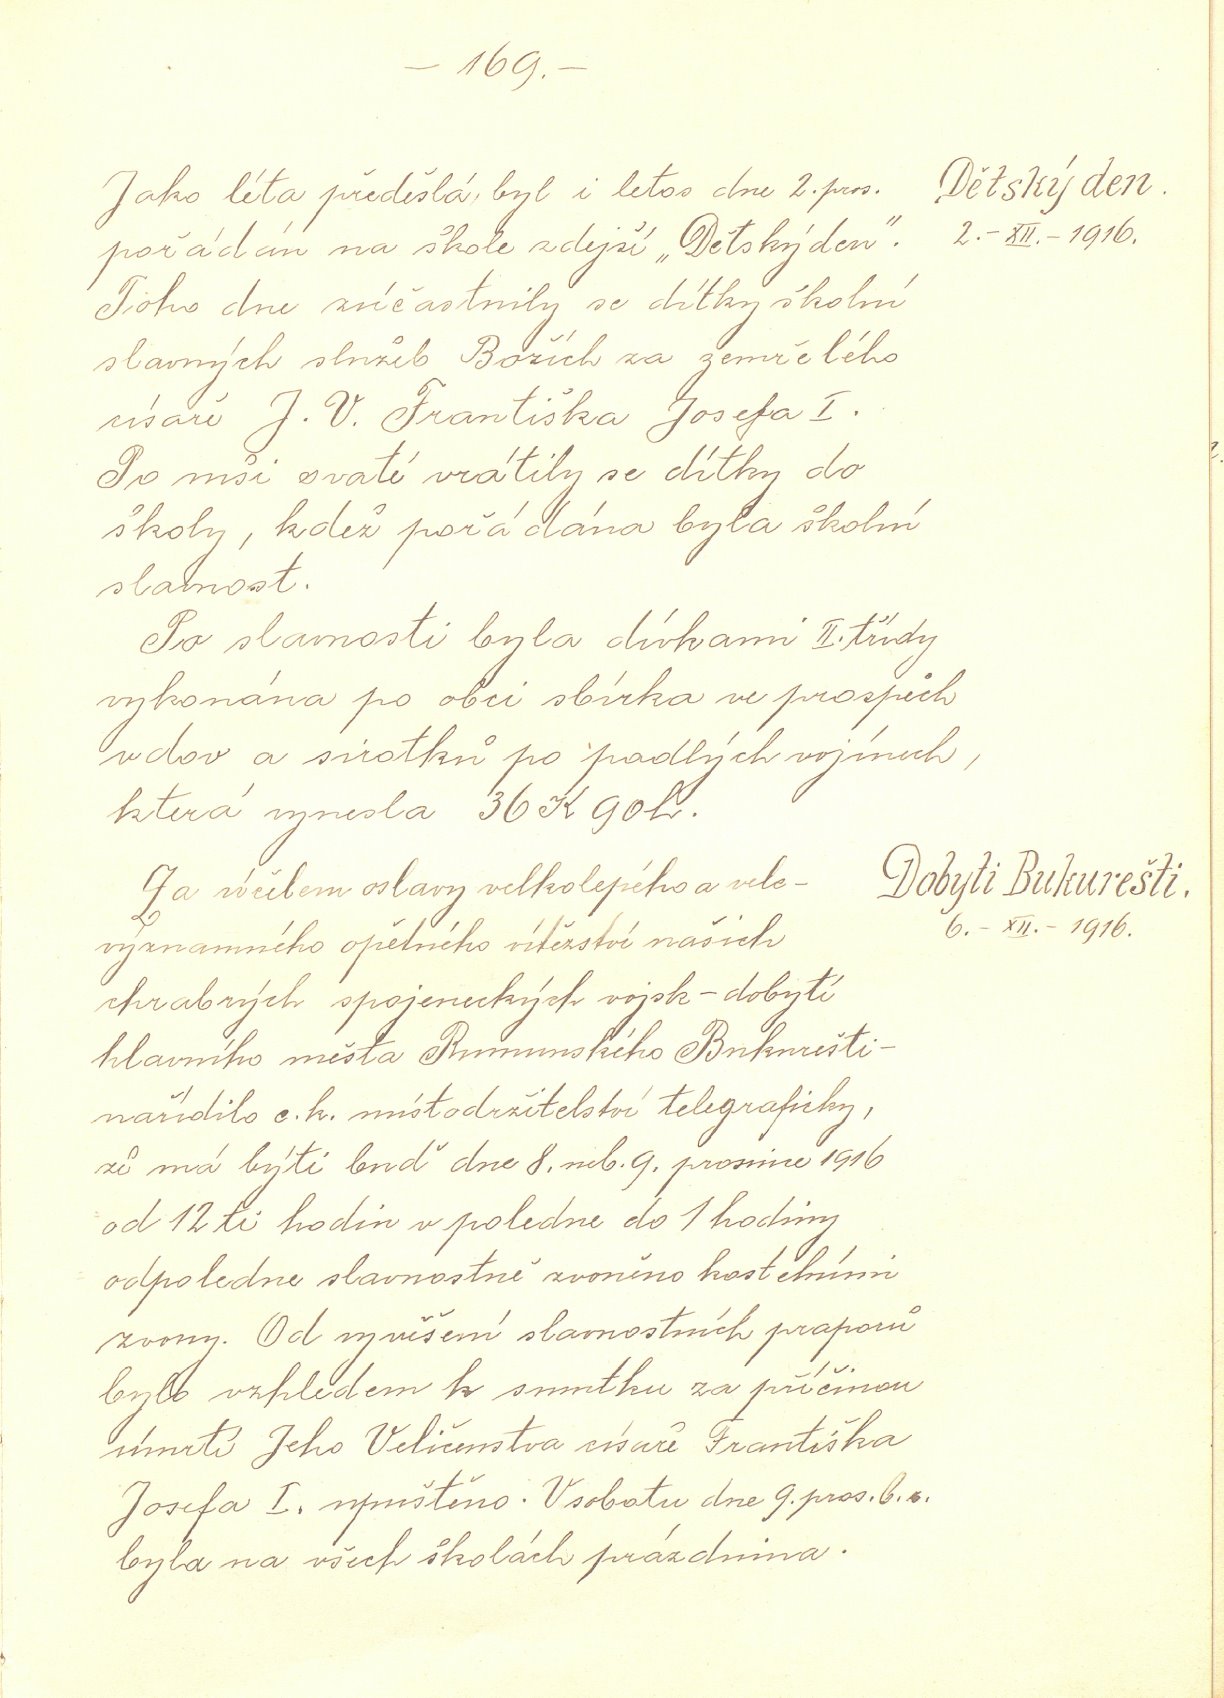 — 169. —
Jako léta předešlá, byl i letos dne 2. pros.
pořádán na škole zdejší „Dětský den".
Toho dne zúčastnily se dítky školní
slavných služeb Božích za zemřelého
císaře J. V. Františka Josefa I.
Po mši svaté vrátily se dítky do
školy, kdež pořádána byla školní
slavnost.
Po slavnosti byla dívkami II. třídy
vykonána po obci sbírka ve prospěch
vdov a sirotků po padlých vojínech,
která vynesla 36 K 90 h.
Dětský den.
2. – XII. – 1916.
Za účelem oslavy velkolepého a vele-
významného opětného vítězství našich
chrabrých spojeneckých vojsk – dobytí
hlavního města Rumunského Bukurešti –
nařídilo c. k. místodržitelství telegraficky,
že má býti buď dne 8. neb. 9. prosince 1916
od 12 ti hodin v poledne do 1 hodiny
odpoledne slavnostně zvoněno kostelními
zvony. Od vyvěšení slavnostních praporů
bylo vzhledem k smutku za příčinou
úmrtí Jeho Veličenstva císaře Františka
Josefa I. upuštěno. V sobotu dne 9. pros. b. r.
byla na všech školách prázdnina.
Dobyti Bukurešti.
6. – XII. – 1916.